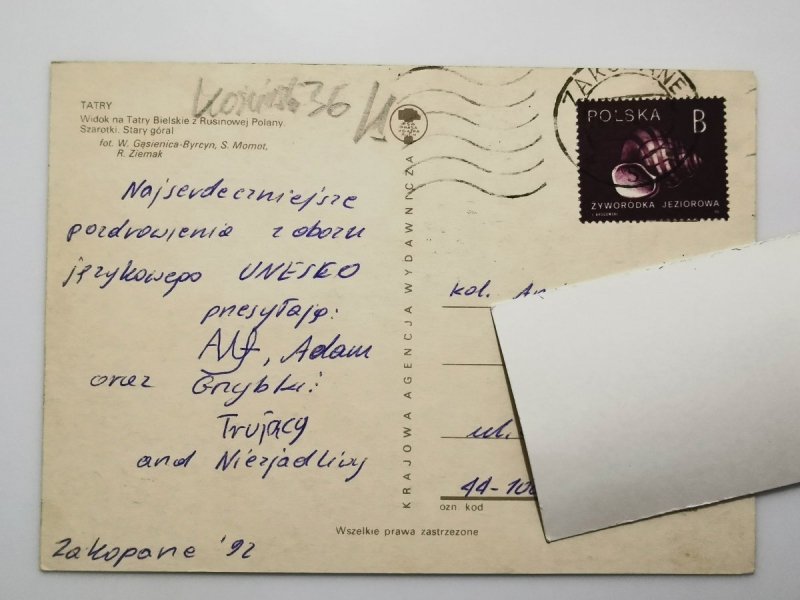 TATRY
Widok na Tatry Bielskie z Rusinowej Polany
Szarotki. Stary góral
fot. W. Gąsienica-Byrcyn, S. Momot,
R. Ziemak
36
Najserdeczniejsze
pozdrowienia z obozu
językowego UNESKO
przesyłają:
Alf, Adam
oraz Grzybki:
Trujący
and Niezjadliwy
Zakopane '92
KRAJOWA AGENCJA WYDAWNICZA
Wszelkie prawa zastrzeżone
ZAKOPANE
POLSKA B
ŻYWORODKA JEZIOROWA
kol.
ul.
44-100
ozn. kod